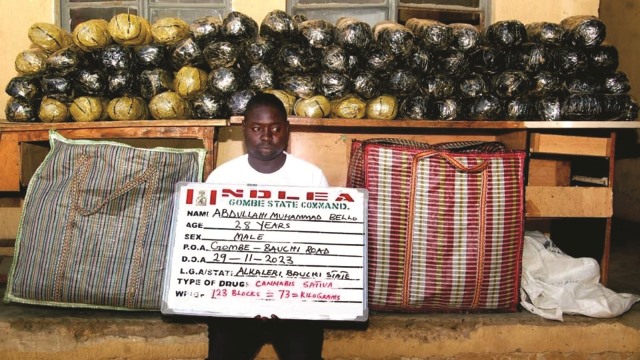 NDLEA
GOMBE STATE COMMAND.
NAME ABDULLAHI MUHAMMAD BELLO
AGE 28 YEARS
SEX MALE
P.O.A GOMBE - BAUCHI ROAD
D.O.A 29-11-2023
L.G.A/STATE ALKALERI, BAUCHI STATE
TYPE OF DRUG: CANNABIS SATIVA
123 BLOCKS = 73=KILOGRAMS